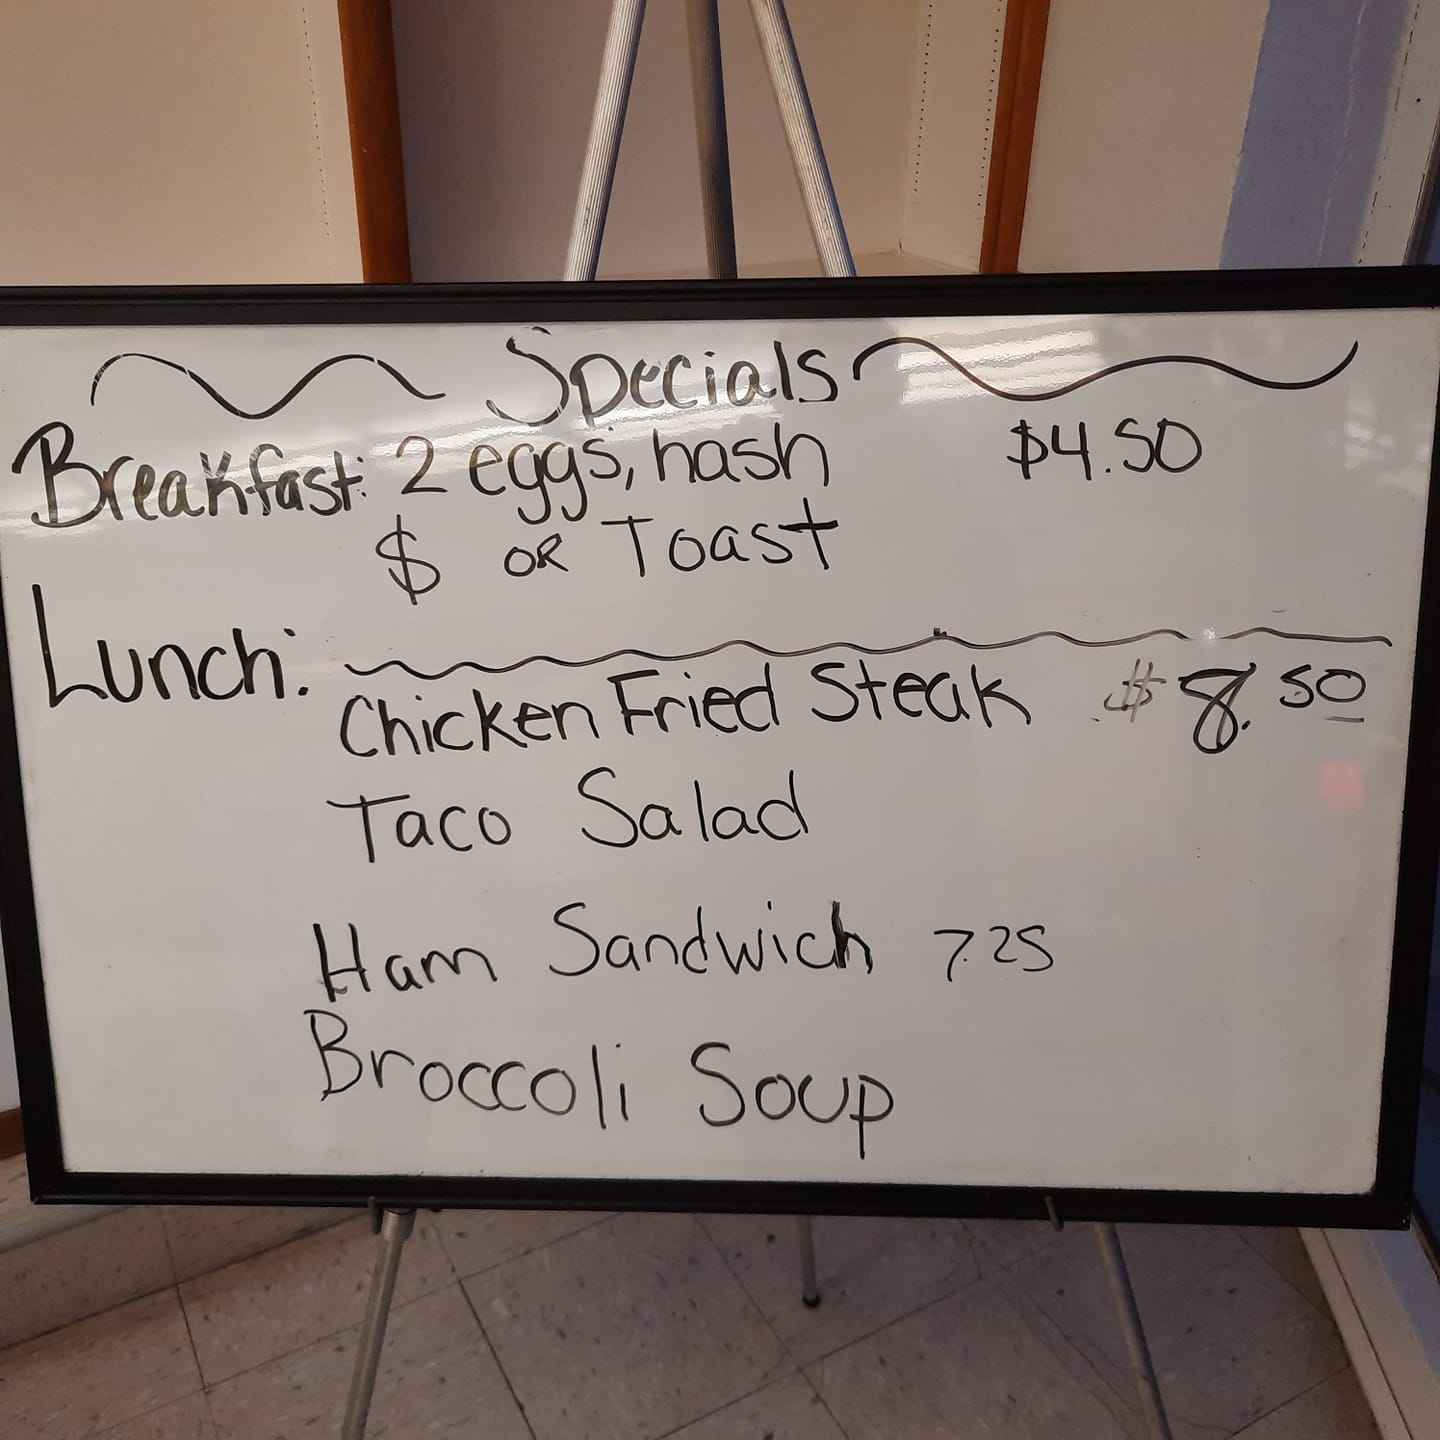 Specials
Breakfast: 2 eggs, hash $4.50
$ OR Toast
Lunch:
Chicken Fried Steak $8.50
Taco Salad
Ham Sandwich 7.25
Broccoli Soup